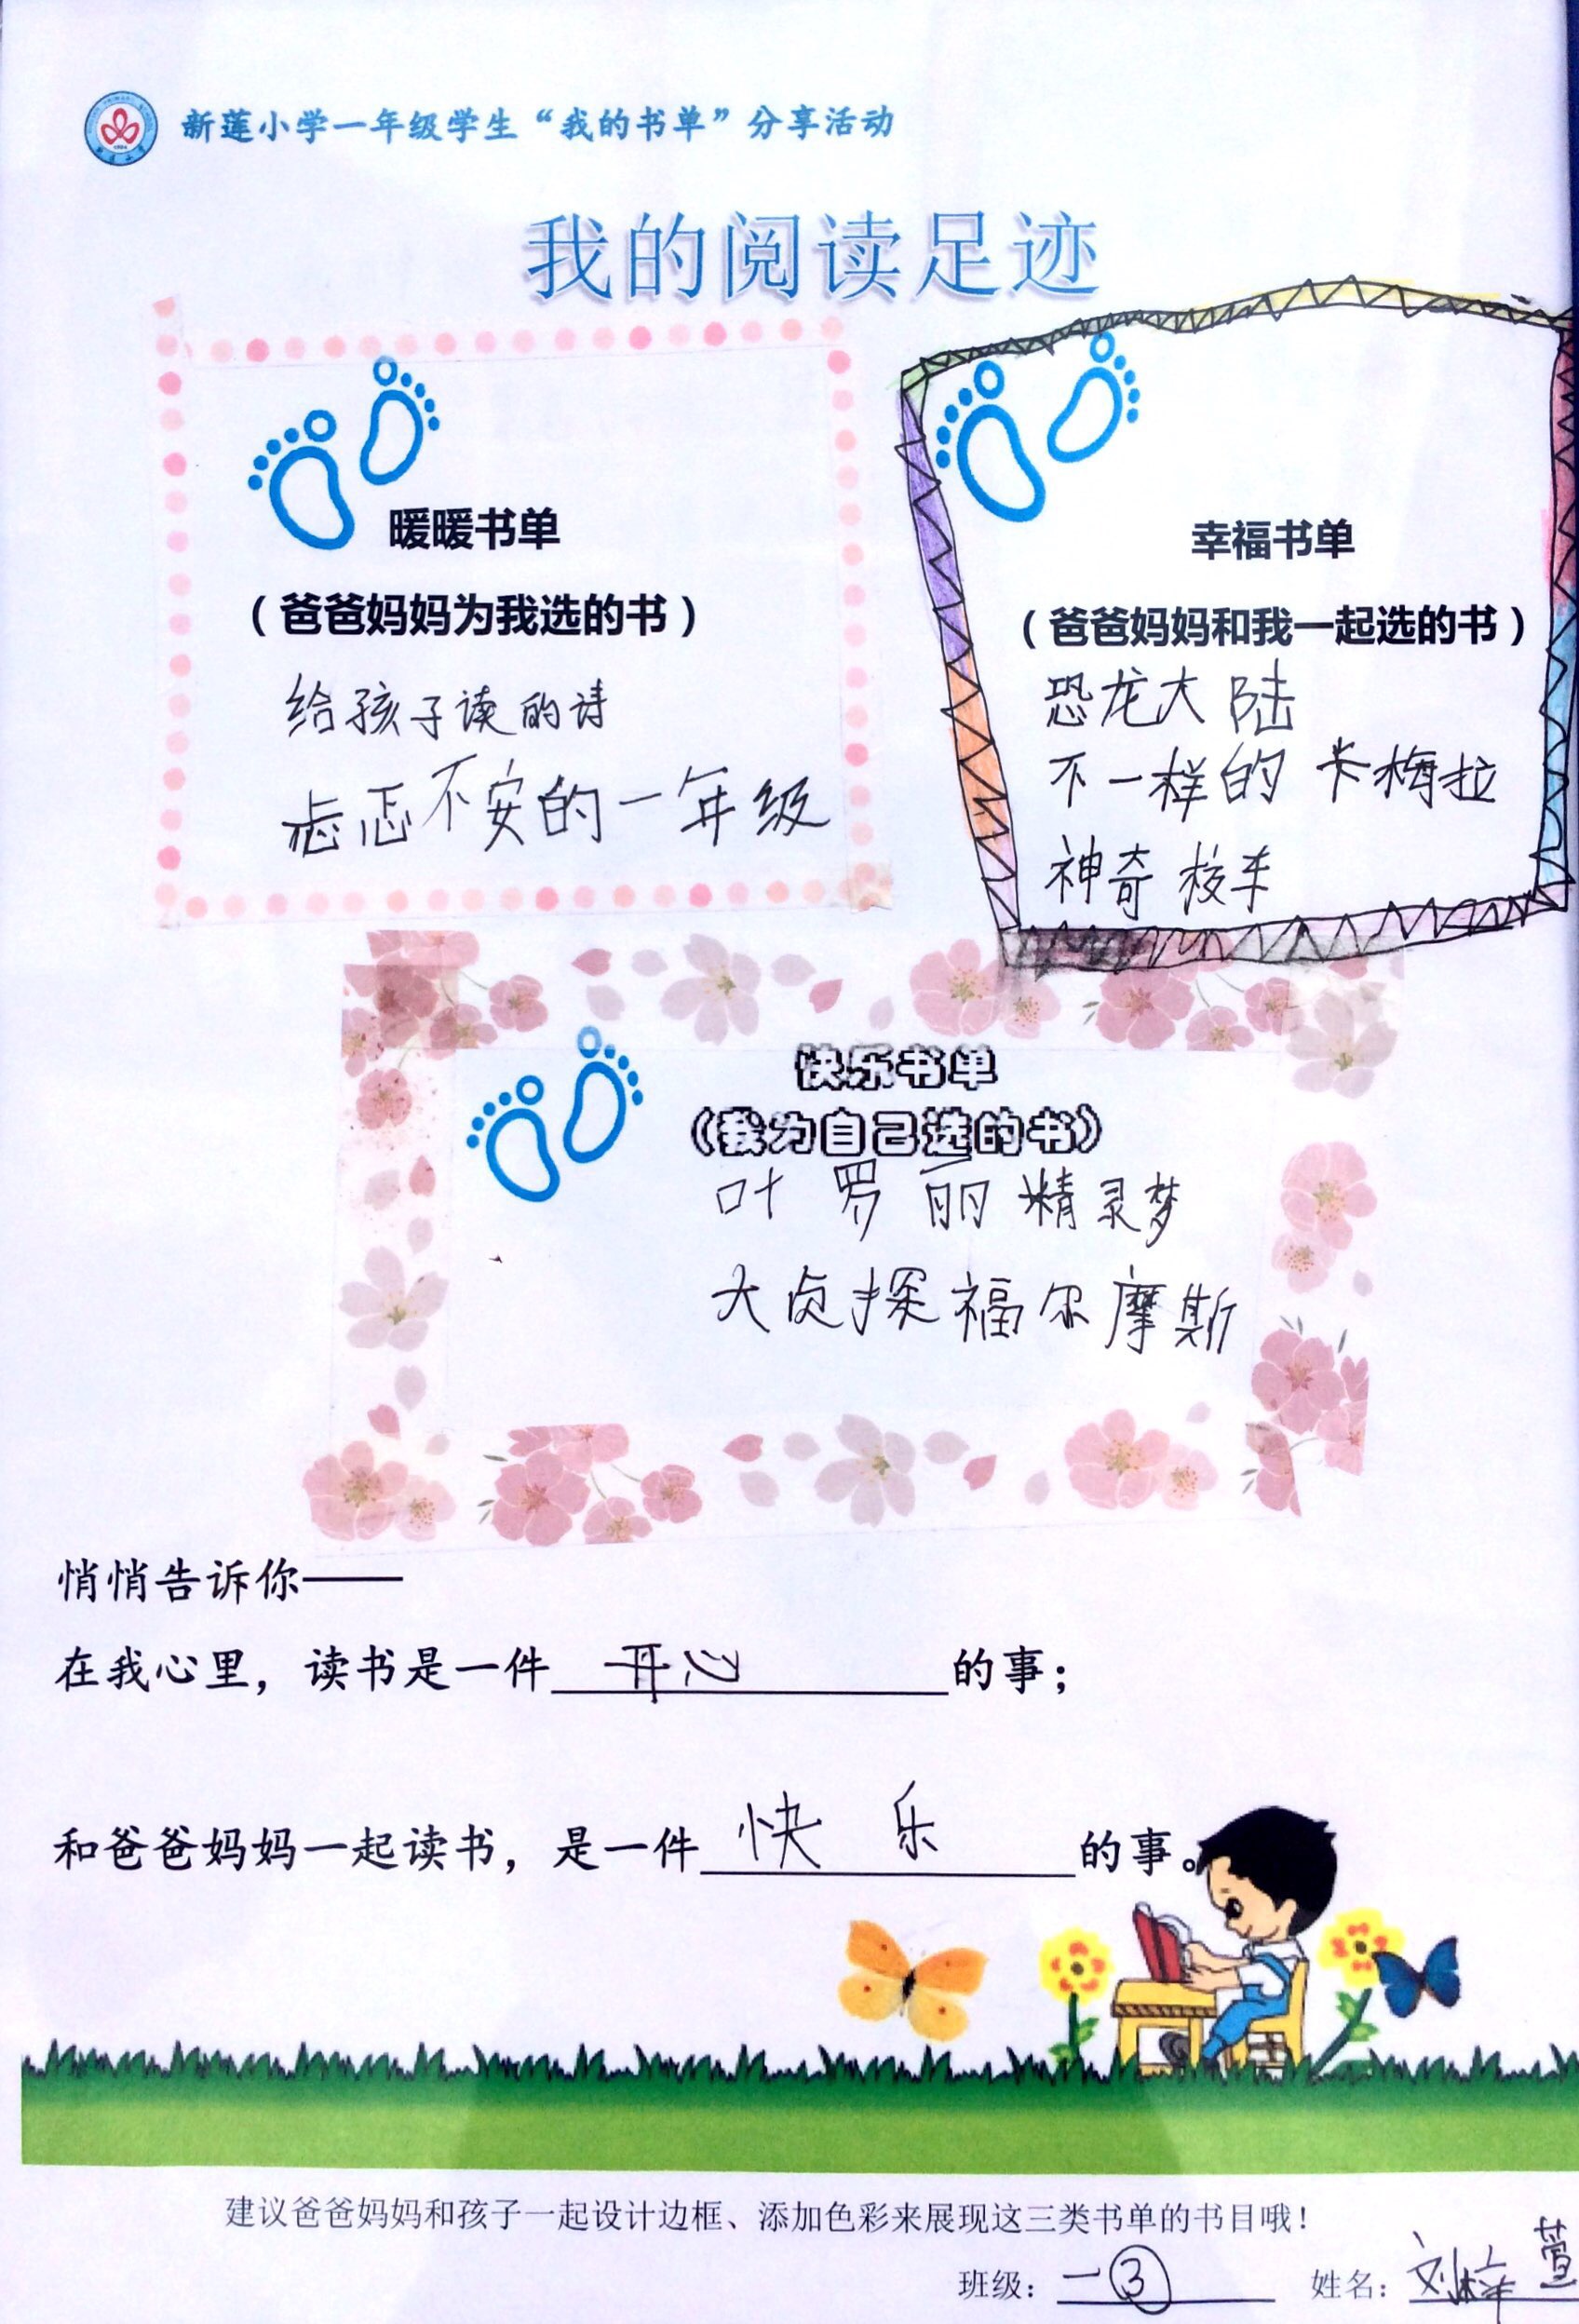 新莲小学一年级学生“我的书单”分享活动
我的阅读足迹
暖暖书单
（爸爸妈妈为我选的书）
给孩子读的诗
忐忑不安的一年级
幸福书单
（爸爸妈妈和我一起选的书）
恐龙大陆
不一样的卡梅拉
神奇校车
快乐书单
（我为自己选的书）
叶罗丽精灵梦
大贞探福尔摩斯
悄悄告诉你——
在我心里，读书是一件 开心 的事；
和爸爸妈妈一起读书，是一件 快乐 的事。
建议爸爸妈妈和孩子一起设计边框、添加色彩来展现这三类书单的书目哦！
班级：一③ 姓名：刘梓萱